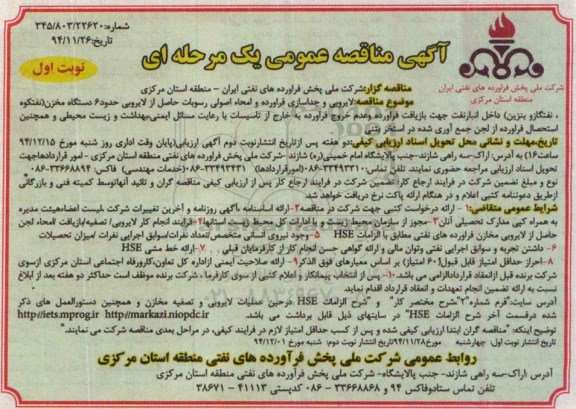 شماره:۳۴۵/۸۰۳/۲۲۶۲۰
تاریخ:۹۴/۱۱/۲۶
آگهی مناقصه عمومی یک مرحله ای
نوبت اول
شرکت ملی پخش فرآورده های نفتی ایران
منطقه استان مرکزی
مناقصه گزار:شرکت ملی پخش فرآورده های نفتی ایران – منطقه استان مرکزی
موضوع مناقصه:لایروبی و جداسازی فرآورده و امحاء اصولی رسوبات حاصل از لایروبی حدود۶ دستگاه مخزن(نفتکوه
، نفتگازو بنزین) داخل انبارنفت جهت بازیافت فرآورده وعدم خروج فرآورده به خارج از تاسیسات با رعایت مسائل ایمنی،بهداشت و زیست محیطی و همچنین
استحصال فرآورده از لجن جمع آوری شده در استخر بتنی
تاریخ،مهلت و نشانی محل تحویل اسناد ارزیابی کیفی:دو هفته پس ازتاریخ انتشارنوبت دوم آگهی ارزیابی(پایان وقت اداری روز شنبه مورخ ۹۴/۱۲/۱۵
ساعت۱۶) به آدرس: اراک–سه راهی شازند–جنب پالایشگاه امام خمینی(ره) شازند –شرکت ملی پخش فرآورده های نفتی منطقه استان مرکزی – امور قراردادهاجهت
تحویل اسناد ارزیابی مراجعه حضوری نمایند. تلفن تماس:۳۳۴۹۳۳۱۰–۰۸۶(امورقراردادها) ۳۳۴۹۳۴۳۱–۰۸۶(خدمات مهندسی) فاکس: ۳۳۶۶۸۸۹۴–۰۸۶
نوع و مبلغ تضمین شرکت در فرایند ارجاع کار: تضمین شرکت در فرایند ارجاع کار پس از ارزیابی کیفی مناقصه گران و تائید آنهاتوسط کمیته فنی و بازرگانی
ازطریق دعوتنامه کتبی اعلام و در هنگام ارائه پاکت نرخ دریافت خواهد شد.
شرایط عمومی متقاضی:۱– ارائه درخواست کتبی جهت شرکت در مناقصه۲–ارائه اساسنامه ،آگهی روزنامه و آخرین تغییرات شرکت ولیست اعضاءهیئت مدیره
به همراه کپی مدارک تحصیلی آنان۳–مجوز از سازمان محیط زیست و یا ادارات کل محیط زیست استانها۴–فرایند انجام کار لایروبی/ تصفیه/بازیافت /امحاء لجن
حاصل از لایروبی مخازن فرآورده های نفتی مطابق با الزامات HSE ۵–وجود نیروی انسانی متخصص/تعداد نفرات/سوابق اجرایی نفرات /میزان تحصیلات
۶– داشتن تجربه و سوابق اجرایی نفتی وتوان مالی و ارائه گواهی حسن انجام کار از کارفرمایان قبلی ۷–ارائه خط مشی HSE
۸–احراز حداقل امتیاز قابل قبول(۶۰ امتیاز) بر اساس معیارهای فوق الذکر۹– ارائه صلاحیت ایمنی ازاداره کل تعاون،کارورفاه اجتماعی استان مرکزی ازسوی
شرکت برنده قبل ازانعقاد قراردادالزامی می باشد.۱۰–پس از انتخاب پیمانکار و اعلام کتبی از سوی کارفرما ، شرکت برنده موظف است حداکثر دو هفته بعد از ابلاغ
نسبت به ارائه تضمین انجام تعهدات و انعقاد قرارداد اقدام نماید.
آدرس سایت:"فرم شماره"۲"،شرح مختصر کار" و "شرح الزامات HSE درحین عملیات لایروبی و تصفیه مخازن و همچنین دستورالعمل های ذکر
شده درقسمت آخر شرح الزامات HSE" در سایتهای ذیل قابل برداشت می باشد. http://markazi.niopdc.ir http://iets.mporg.ir
توضیح اینکه: "مناقصه گران ابتدا ارزیابی کیفی شده و پس از کسب حداقل امتیاز لازم در فرایند کیفی، در مراحل بعدی مناقصه شرکت می نمایند."
تاریخ انتشار نوبت اول: چهارشنبه مورخ۹۴/۱۱/۲۸تاریخ انتشار نوبت دوم: شنبه مورخ ۹۴/۱۲/۰۱
روابط عمومی شرکت ملی پخش فرآورده های نفتی منطقه استان مرکزی
آدرس :اراک–سه راهی شازند– جنب پالایشگاه– شرکت ملی پخش فرآورده های نفتی منطقه استان مرکزی
تلفن تماس ستادوفاکس ۹۴ و ۳۳۶۶۸۸۶۸ – ۰۸۶ کدپستی ۴۱۱۱۳ – ۳۸۶۷۱